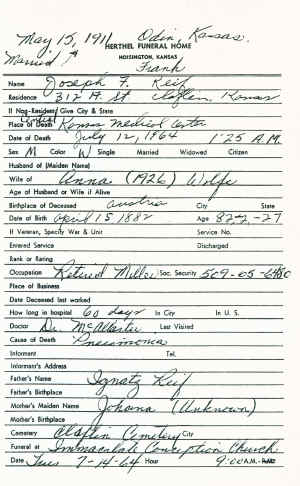 May 15, 1911 Odin, Kansas.
Married
HERTHEL FUNERAL HOME
HOISINGTON, KANSAS
Frank
Name Joseph F. Reif
Residence 312 A St. Claflin, Kansas
If Non-Resident Give City & State
Place of Death Kansas Medical Center
Date of Death July 12, 1964 1:25 A.M.
Sex M Color W Single Married Widowed Citizen
Husband of (Maiden Name)
Wife of Anna (1926) Wolfe
Age of Husband or Wife if Alive
Birthplace of Deceased Austria City State
Date of Birth April 15 1882 Age 82-2-27
If Veteran, Specify War & Unit Service No.
Entered Service Discharged
Rank or Rating
Occupation Retired Miller Soc. Security 509-05-6480
Place of Business
Date Deceased last worked
How long in hospital 60 days In City In U. S.
Doctor Dr. McAllaster Last Visited
Cause of Death Pneumonia
Informant Tel.
Informant's Address
Father's Name Ignatz Reif
Father's Birthplace
Mother's Maiden Name Johana (Unknown)
Mother's Birthplace
Cemetery Claflin Cemetery City
Funeral at Immaculate Conception Church
Date Tues 7-14-64 Hour 9:00 A.M.